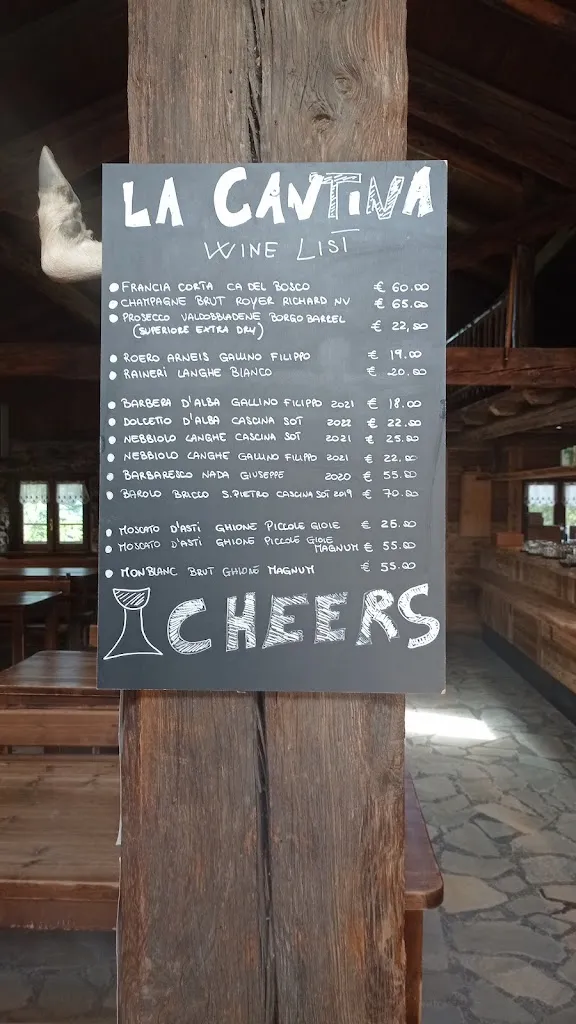 LA CANTINA
WINE LIST
FRANCIA CORTA CA DEL BOSCO € 60.00
CHAMPAGNE BRUT ROYER RICHARD NV € 65.00
PROSECCO VALDOBBLADENE BORGO BARREL
(SUPERIORE EXTRA DRY) € 22,50
ROERO ARNEIS GALLINO FILIPPO € 19.00
RAINERI LANGHE BIANCO € 20.00
BARBERA D'ALBA GALLINO FILIPPO 2021 € 18.00
DOLCETTO D'ALBA CASCINA SOT 2022 € 22.00
NEBBIOLO LANGHE CASCINA SOT 2021 € 25.00
NEBBIOLO LANGHE GALLINO FILIPPO 2021 € 22.00
BARBARESCO NADA GIUSEPPE 2020 € 55.00
BAROLO BRICCO S.PIETRO CASCINA SOT 2019 € 70.00
MOSCATO D'ASTI GHIONE PICCOLE GIOIE € 25.00
MOSCATO D'ASTI GHIONE PICCOLE GIOIE
MAGNUM € 55.00
MONBLANC BRUT GHIONE MAGNUM € 55.00
CHEERS